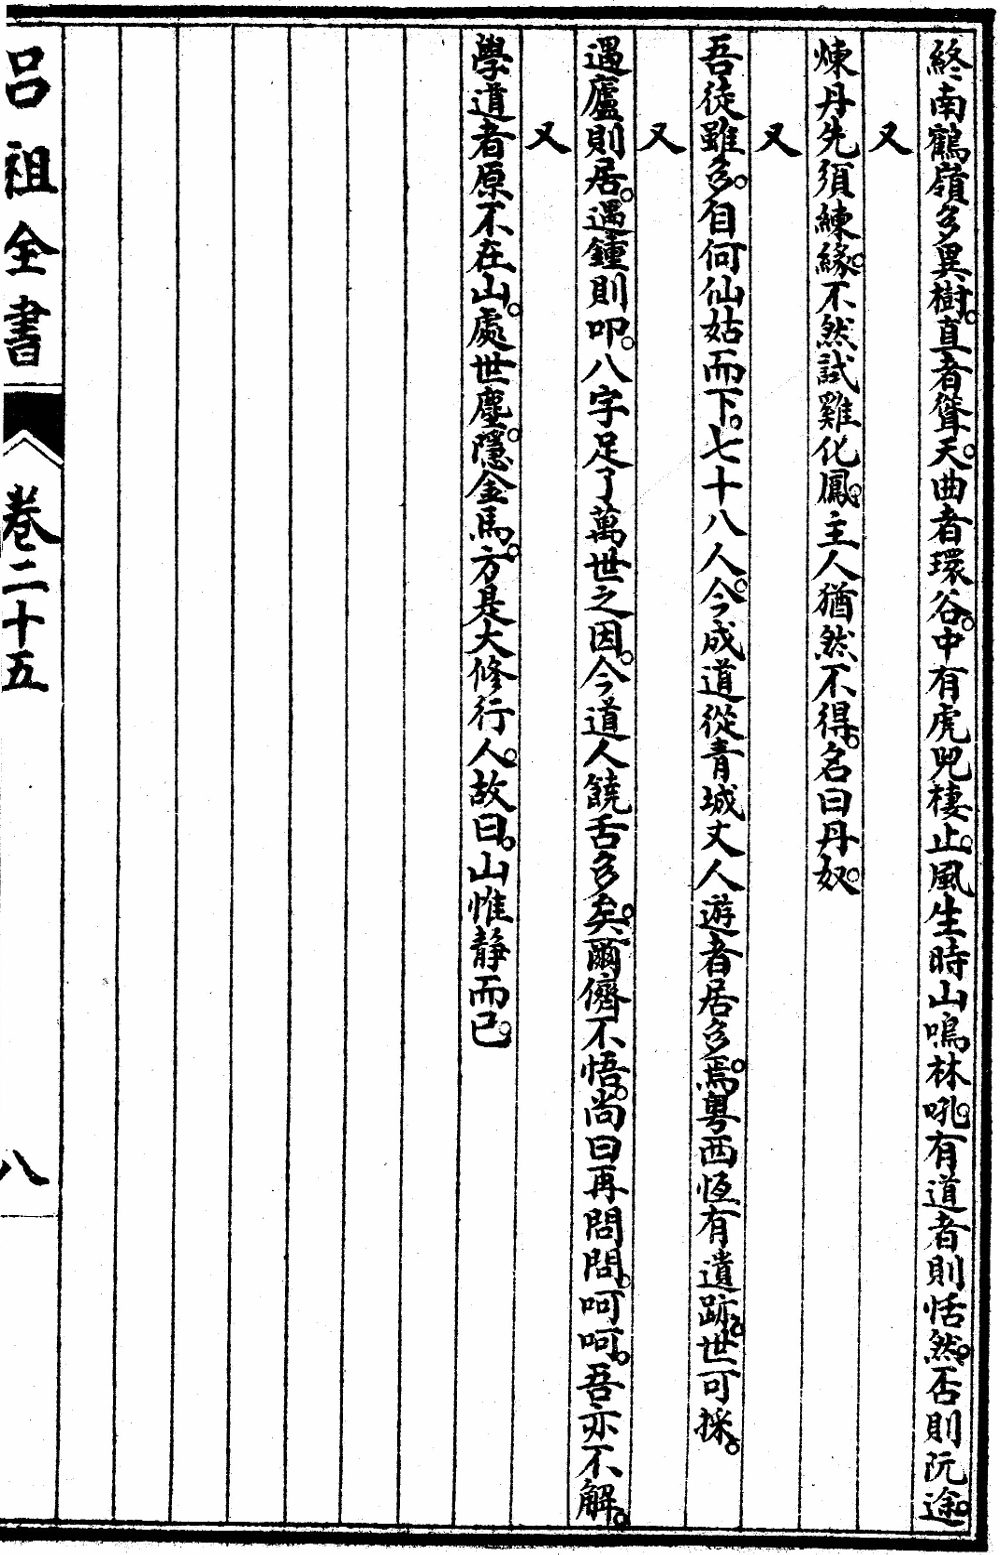 終南鶴嶺多異樹。直者聳天。曲者環谷。中有虎兕棲止。風生時山鳴林吼。有道者則恬然。否則阮途。
又
煉丹先須練緣。不然試雞化鳳。主人猶然不得。名曰丹奴。
又
吾徒雖多。自何仙姑而下。七十八人。今成道從青城丈人遊者居多。焉粤西恆有遺跡。世可採。
又
遇廬則居。遇鍾則叩。八字足了萬世之因。今道人饒舌多矣。爾儕不悟。尚曰再問問。呵呵。吾亦不解。
又
學道者原不在山。處世塵。隱金馬。方是大修行人。故曰。山惟静而已。
呂祖全書
卷二十五
八